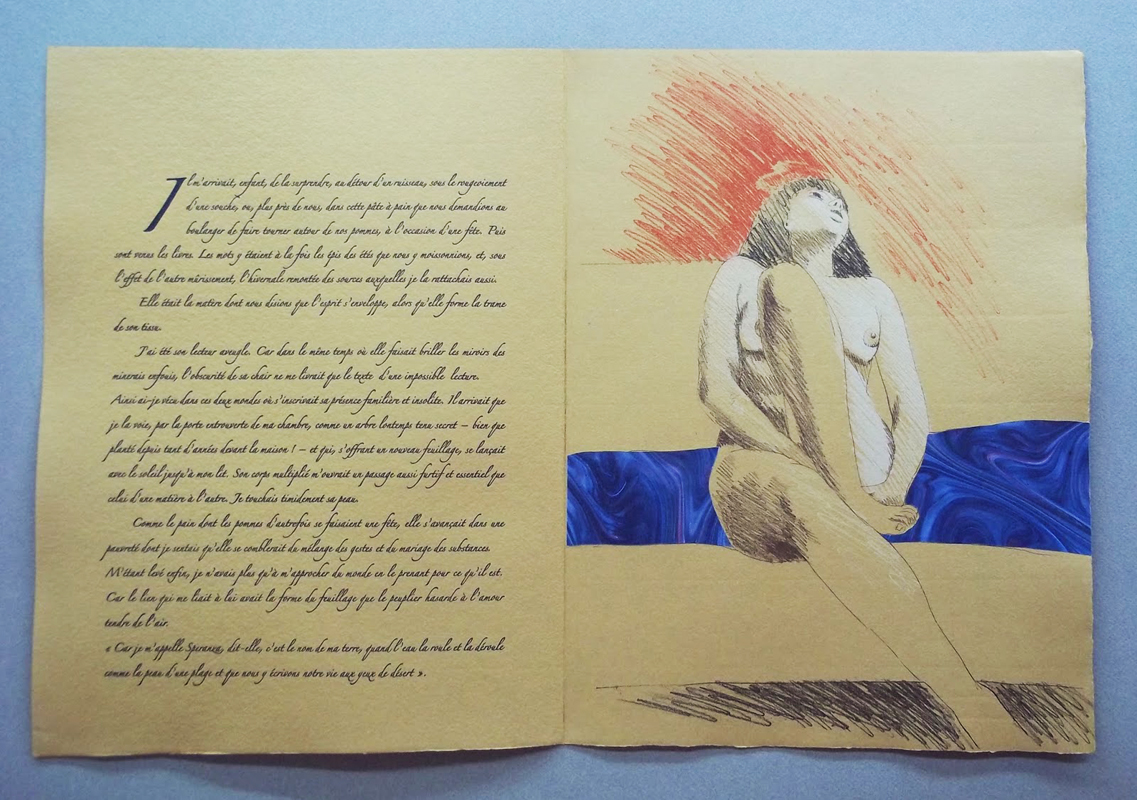 Il m'arrivait, enfant, de la surprendre, au détour d'un ruisseau, sous le rougeoiement
d'une souche, ou, plus près de nous, dans cette pâte à pain que nous demandions au
boulanger de faire tourner autour de nos pommes, à l'occasion d'une fête. Puis
sont venus les livres. Les mots y étaient à la fois les épis des étés que nous y moissonnions, et, sous
l'effet de l'autre mûrissement, l'hivernale remontée des sources auxquelles je la rattachais aussi.
Elle était la matière dont nous disions que l'esprit s'enveloppe, alors qu'elle forme la trame
de son tissu.
J'ai été son lecteur aveugle. Car dans le même temps où elle faisait briller les miroirs des
minerais enfouis, l'obscurité de sa chair ne me livrait que le texte d'une impossible lecture.
Ainsi ai-je vécu dans ces deux mondes où s'inscrivait sa présence familière et insolite. Il arrivait que
je la voie, par la porte entrouverte de ma chambre, comme un arbre lontemps tenu secret – bien que
planté depuis tant d'années devant la maison ! – et qui, s'offrant un nouveau feuillage, se lançait
avec le soleil jusqu'à mon lit. Son corps multiplié m'ouvrait un passage aussi furtif et essentiel que
celui d'une matière à l'autre. Je touchais timidement sa peau.
Comme le pain dont les pommes d'autrefois se faisaient une fête, elle s'avançait dans une
pauvreté dont je sentais qu'elle se comblerait du mélange des gestes et du mariage des substances.
M'étant levé enfin, je n'avais plus qu'à m'approcher du monde en le prenant pour ce qu'il est.
Car le lien qui me liait à lui avait la forme du feuillage que le peuplier hasarde à l'amour
tendre de l'air.
« Car je m'appelle Speranza, dit-elle, c'est le nom de ma terre, quand l'eau la roule et la déroule
comme la peau d'une plage et que nous y écrivons notre vie aux yeux de désert ».